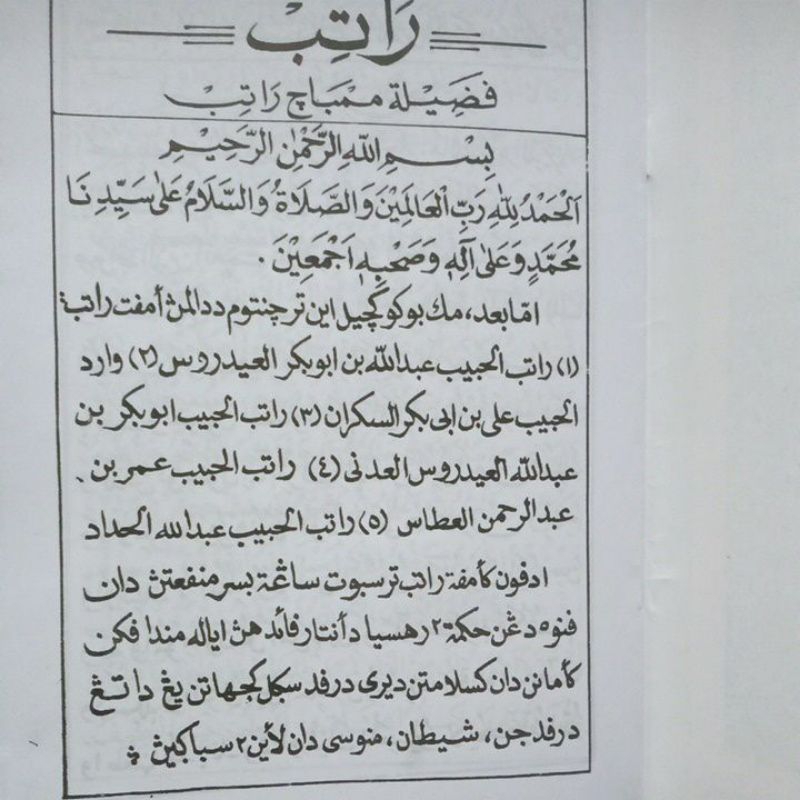 رَاتِبْ
فَضِيْلَة ممباچ رَاتِبْ
بِسْمِ اللهِ الرَّحْمٰنِ الرَّحِيْمِ
اَلْحَمْدُ لِلّٰهِ رَبِّ الْعَالَمِيْنَ وَالصَّلَاةُ وَالسَّلَامُ عَلٰى سَيِّدِنَا
مُحَمَّدٍ وَعَلٰى آلِهٖ وَصَحْبِهٖ اَجْمَعِيْنَ .
امّا بعد، مك بوكو كچيل اين ترچنتوم ددالمڽ أمفت راتب:
(١) راتب الحبيب عبدالله بن ابوبكر العيدروس (٢) وارد
الحبيب علي بن ابى بكر السكران (٣) راتب الحبيب ابوبكر بن
عبدالله العيدروس العدنى (٤) راتب الحبيب عمر بن
عبدالرحمن العطاس (٥) راتب الحبيب عبدالله الحداد
ادفون كأمفة راتب ترسبوت ساڠة بسر منفعتڽ دان
فنوه دڠن حكمة٢ رهسيا دأنتار فائدهڽ اياله مندافكن
كأمانن دان كسلامتن ديرى درفد سڬل كجهاتن يڠ داتڠ
درفد جن، شيطان، منوسى دان لأين٢ سباڬيڽ